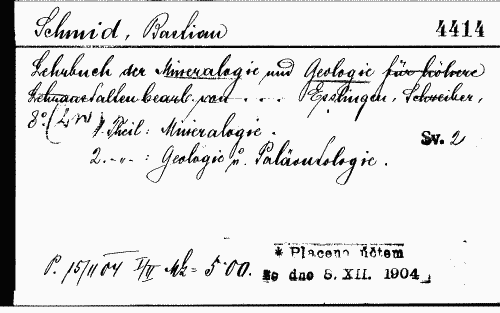 Schmid, Bastian 4414
Lehrbuch der Mineralogie und Geologie für höhere
Lehranstalten bearb. von . . . Esslingen, Schreiber,
8°. (LW)
1. Theil: Mineralogie. Sv. 2
2. -„- : Geologie u. Paläontologie.
P. 15/11 04 I/II Mk = 5·00.
* Placeno účtem
ze dne 8. XII. 1904